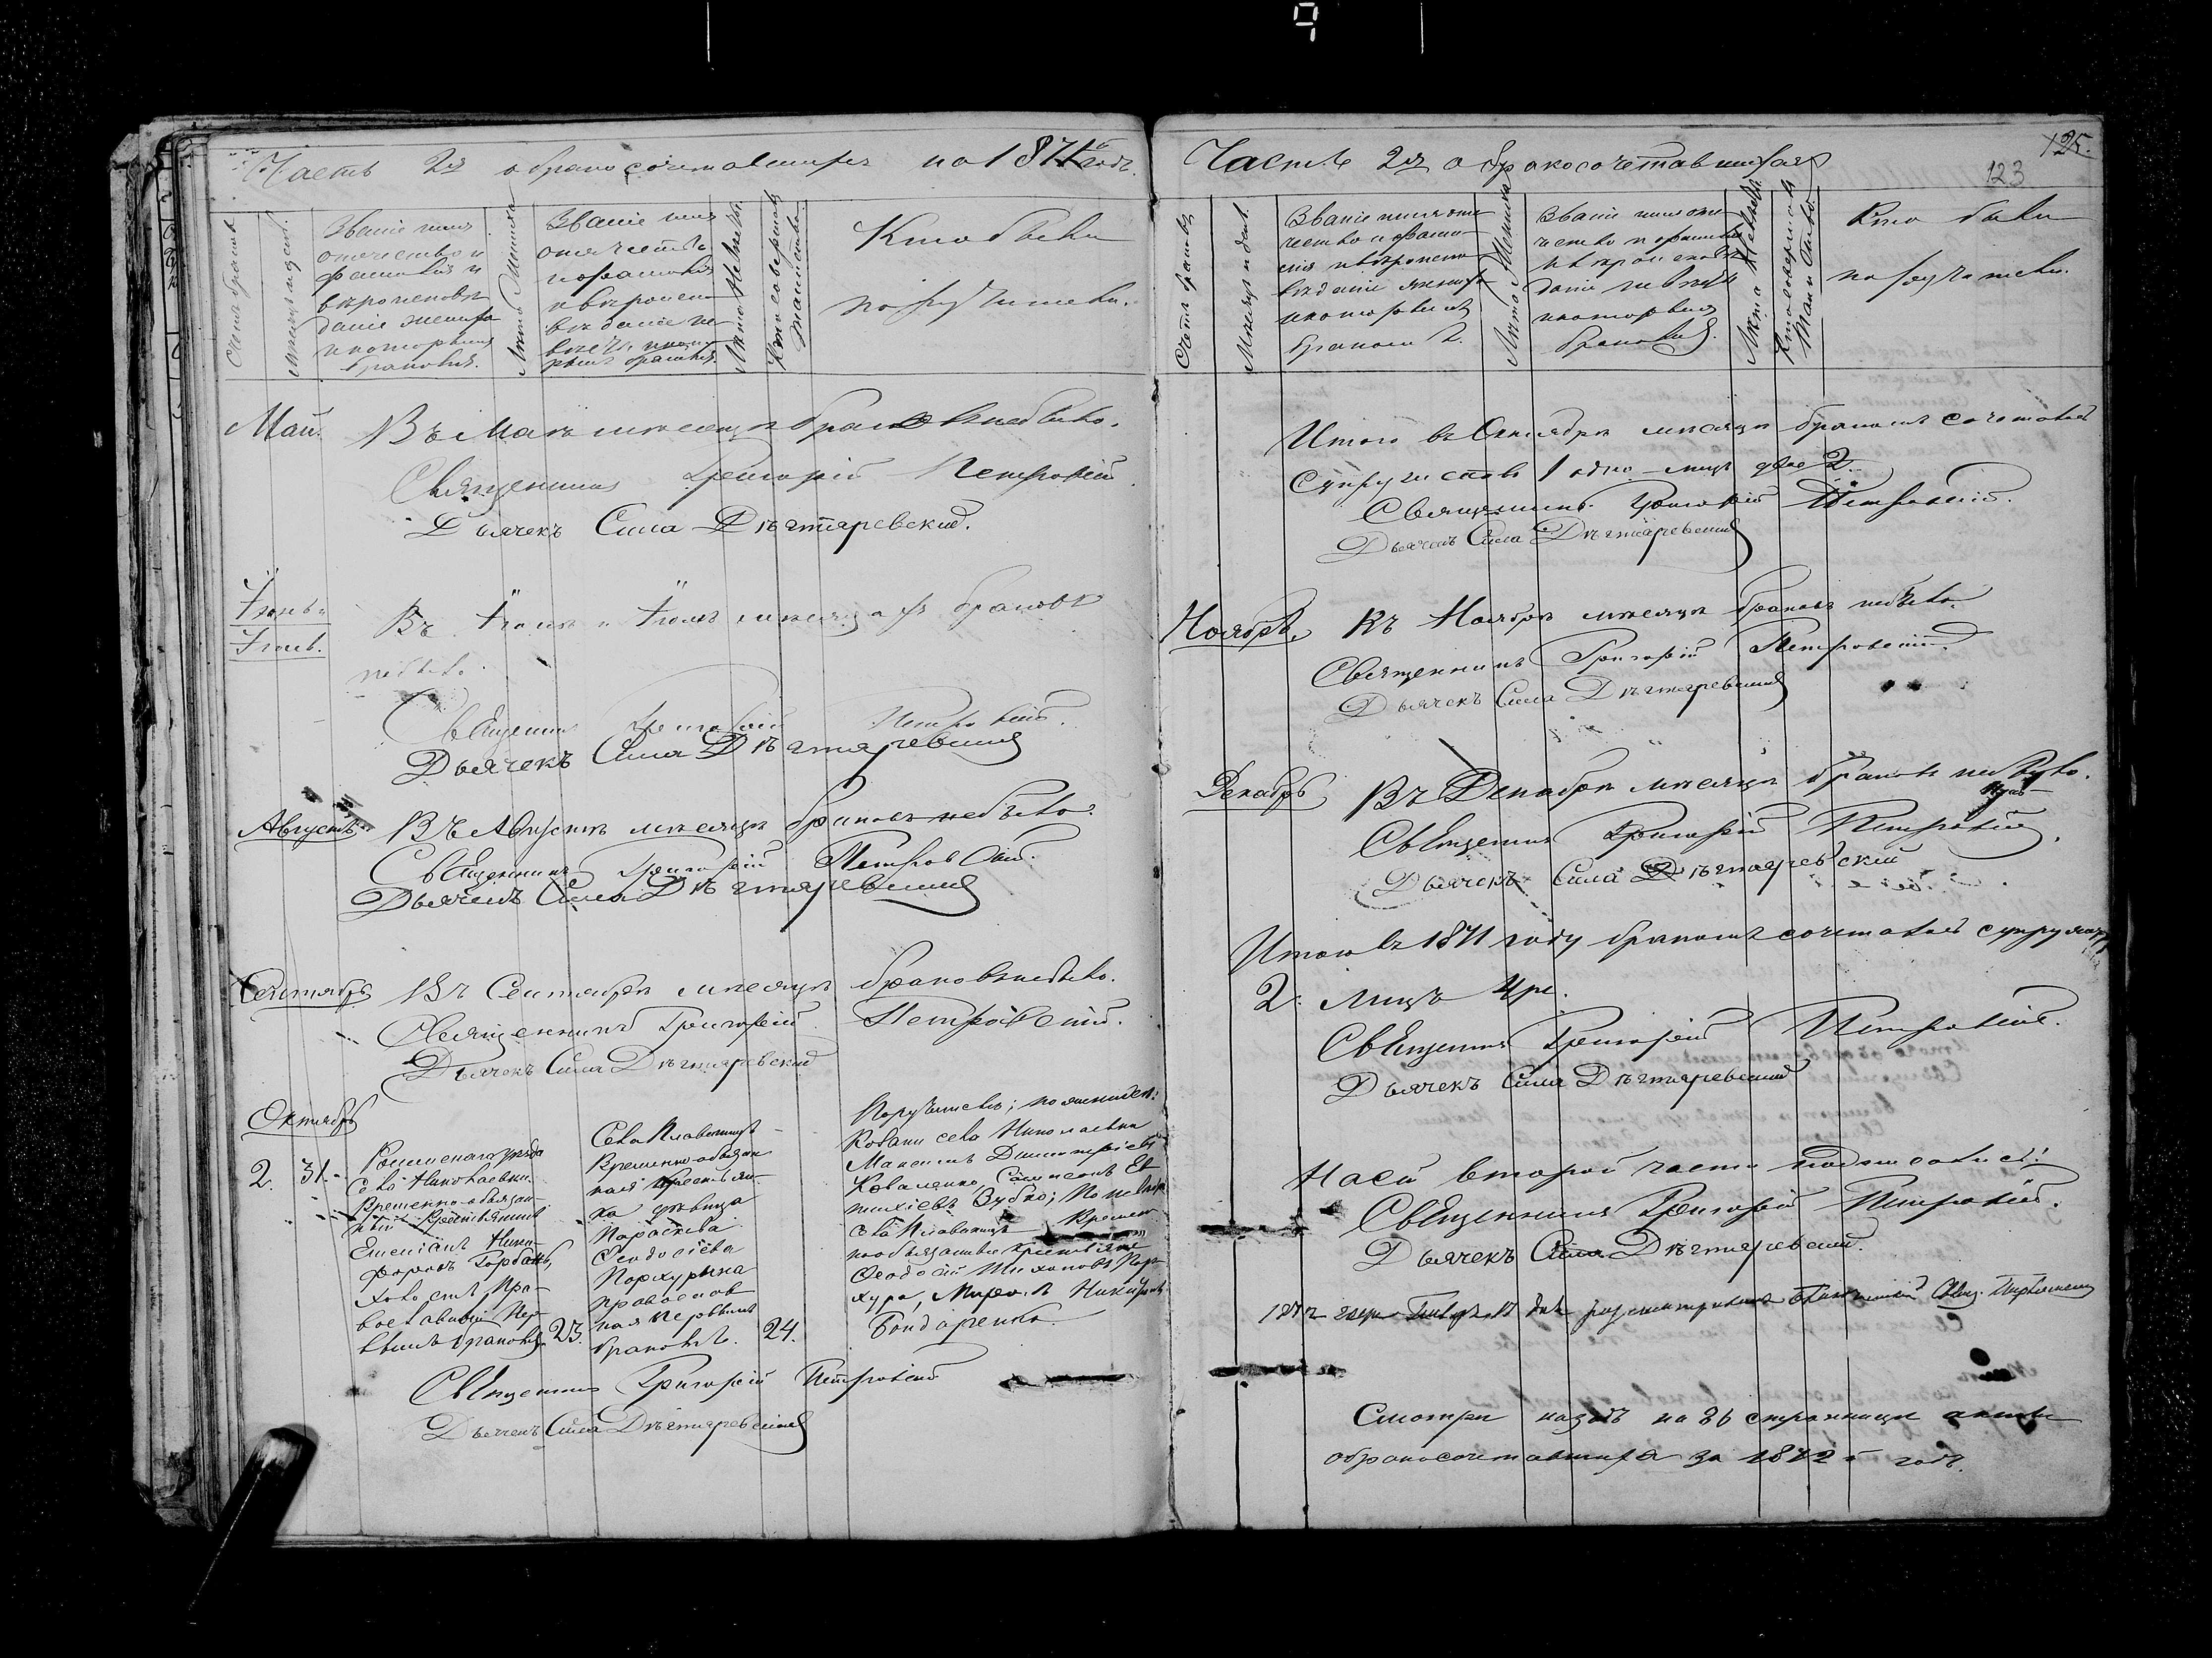 Часть 2я о бракосочетавшихся на 1871й годъ.
Счетъ браковъ.
Мѣсяцъ и день.
Званіе имя
отечество и
фамилія и
вѣроисповѣ
даніе жениха
и которымъ
бракомъ.
Лѣта Жениха
Званіе имя
отечество
и фамилія
и вѣроиспо
вѣданіе не
вѣсты, и кото
рымъ бракомъ.
Лѣта Невѣсты.
Кто совершалъ
таинство
Кто были
поручители.
Май. Въ Маѣ мѣсяцѣ браковъ небыло.
Священникъ Григорій Петровскій.
Дьячекъ Сила Дѣгтяревский.
Іюнь и
Іюль.
Въ Іюнѣ и Іюлѣ мѣсяцахъ браковъ
небыло.
Священникъ Григорій Петровскій.
Дьячекъ Сила Дѣгтяревский
Августъ. Въ Августѣ мѣсяцѣ браковъ небыло.
Священникъ Григорій Петровскій.
Дьячекъ Сила Дѣгтяревский
Сентябрь Въ Сентябрѣ мѣсяцѣ браковъ небыло.
Священникъ Григорій Петровскій.
Дьячекъ Сила Дѣгтяревский
Октябрь
2. 31.
Роменскаго уѣзда
села Николаевки
Временно-обязан-
ный Крестьянинъ
Емеліанъ Ники-
форовъ Горбань,
холостъ, Пра-
вославный Пер-
вымъ бракомъ. 23.
Села Плавинищъ
Временно-обязан
ная крестьян-
ка дѣвица
Параскева
Ѳеодосіева
Пархурына
православ
ная первымъ
бракомъ. 24.
Поручители; по женихѣ:
села Николаевки
Максимъ Димитріевъ
Коваленко, Ев
тихіевъ Зубко; По невѣстѣ
села Плавинищъ Времен
нообязанные крестьяне
Ѳеодосій Тихоновъ Пар
хура, Миронъ Никифор
Бондаренко.
Священникъ Григорій Петровскій
Дьячекъ Сила Дѣгтяревский
125.
123
Часть 2я о бракосочетавшихся
Счетъ браковъ
Мѣсяцъ и день.
Званіе имя оте
чество и фами
лія и вѣроиспо
вѣданіе жениха
и которымъ
бракомъ.
Лѣта Жениха
Званіе имя оте
чество и фамилія
и вѣроисповѣ
даніе невѣсты
и которымъ
бракомъ.
Лѣта Невѣсты.
Кто совершалъ
Таинство.
Кто были
поручители.
Итого въ Октябрѣ мѣсяцѣ бракомъ сочетались
Супружествъ 1 одно лицъ двое 2.
Священникъ Григорій Петровскій.
Дьячекъ Сила Дѣгтяревский
Ноябрь. Въ Ноябрѣ мѣсяцѣ браковъ небыло.
Священникъ Григорій Петровскій
Дьячекъ Сила Дѣгтяревский
Декабрь Въ Декабрѣ мѣсяцѣ браковъ небыло.
Священникъ Григорій Петровскій.
Дьячекъ Сила Дѣгтяревский
Итого въ 1871 году бракомъ сочетались супружествъ
2. Лицъ 4ре.
Священникъ Григорій Петровскій.
Дьячекъ Сила Дѣгтяревский
Насей второй части подписались:
Священникъ Григорій Петровскій.
Дьячекъ Сила Дѣгтяревский.
Смотри назадъ на 86 страницѣ
о бракосочетавшихся за 1872й годъ.